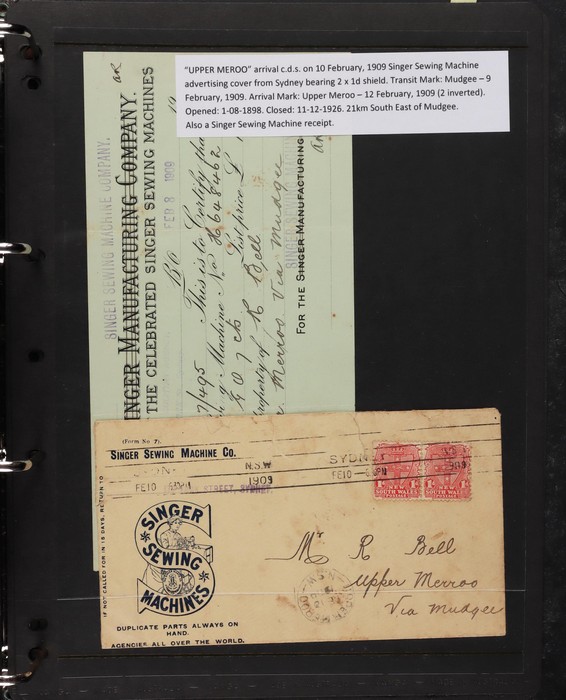 "UPPER MEROO" arrival c.d.s. on 10 February, 1909 Singer Sewing Machine
advertising cover from Sydney bearing 2 x 1d shield. Transit Mark: Mudgee – 9
February, 1909. Arrival Mark: Upper Meroo – 12 February, 1909 (2 inverted).
Opened: 1-08-1898. Closed: 11-12-1926. 21km South East of Mudgee.
Also a Singer Sewing Machine receipt.
SINGER SEWING MACHINE COMPANY.
SINGER MANUFACTURING COMPANY.
THE CELEBRATED SINGER SEWING MACHINES
FEB 8 1909
This is to Certify tha
Machine No
List price £
property of R Bell
Merroo Via Mudgee
FOR THE SINGER MANUFACTURING
(Form No 7).
SINGER SEWING MACHINE CO.
N.S.W
1909
FE10
STREET, SYDNEY.
SYDN
FE10
1D NEW 1D
SOUTH WALES
POSTAGE
1D NEW 1D
SOUTH WALES
POSTAGE
IF NOT CALLED FOR IN 15 DAYS, RETURN TO
SINGER
SEWING
MACHINES
DUPLICATE PARTS ALWAYS ON
HAND.
AGENCIES ALL OVER THE WORLD.
Mr R Bell
Upper Merroo
Via Mudgee